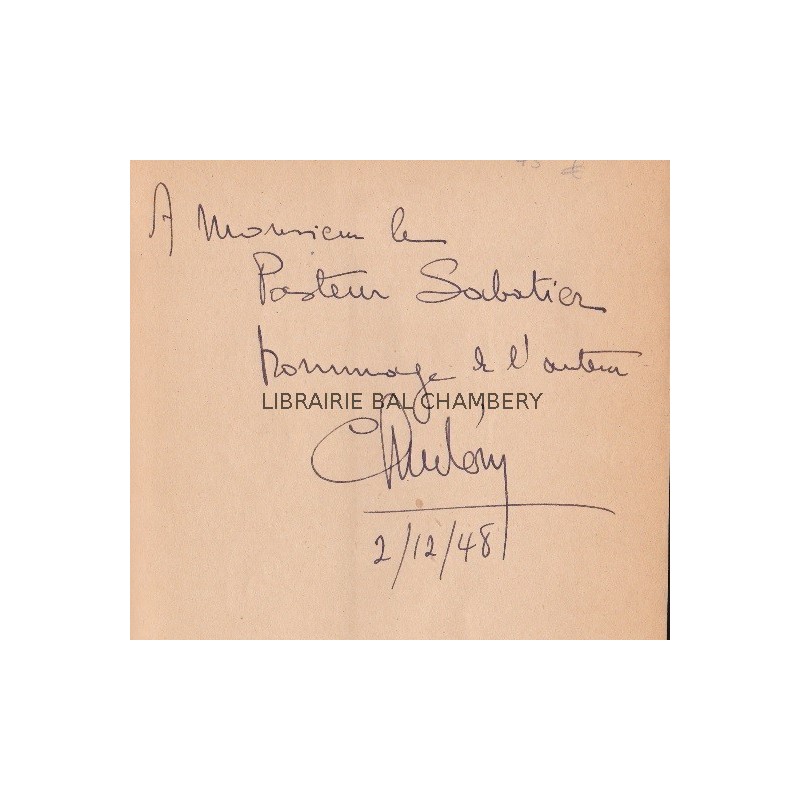 €
A Monsieur le
Pasteur Sabatier
hommage de l'auteur
LIBRAIRIE BAL CHAMBERY
2/12/48